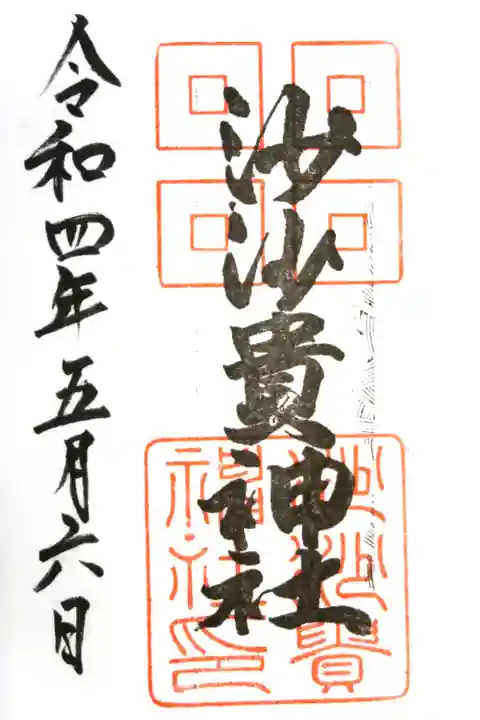 沙沙貴神社
沙沙貴
神社印
令和四年五月六日